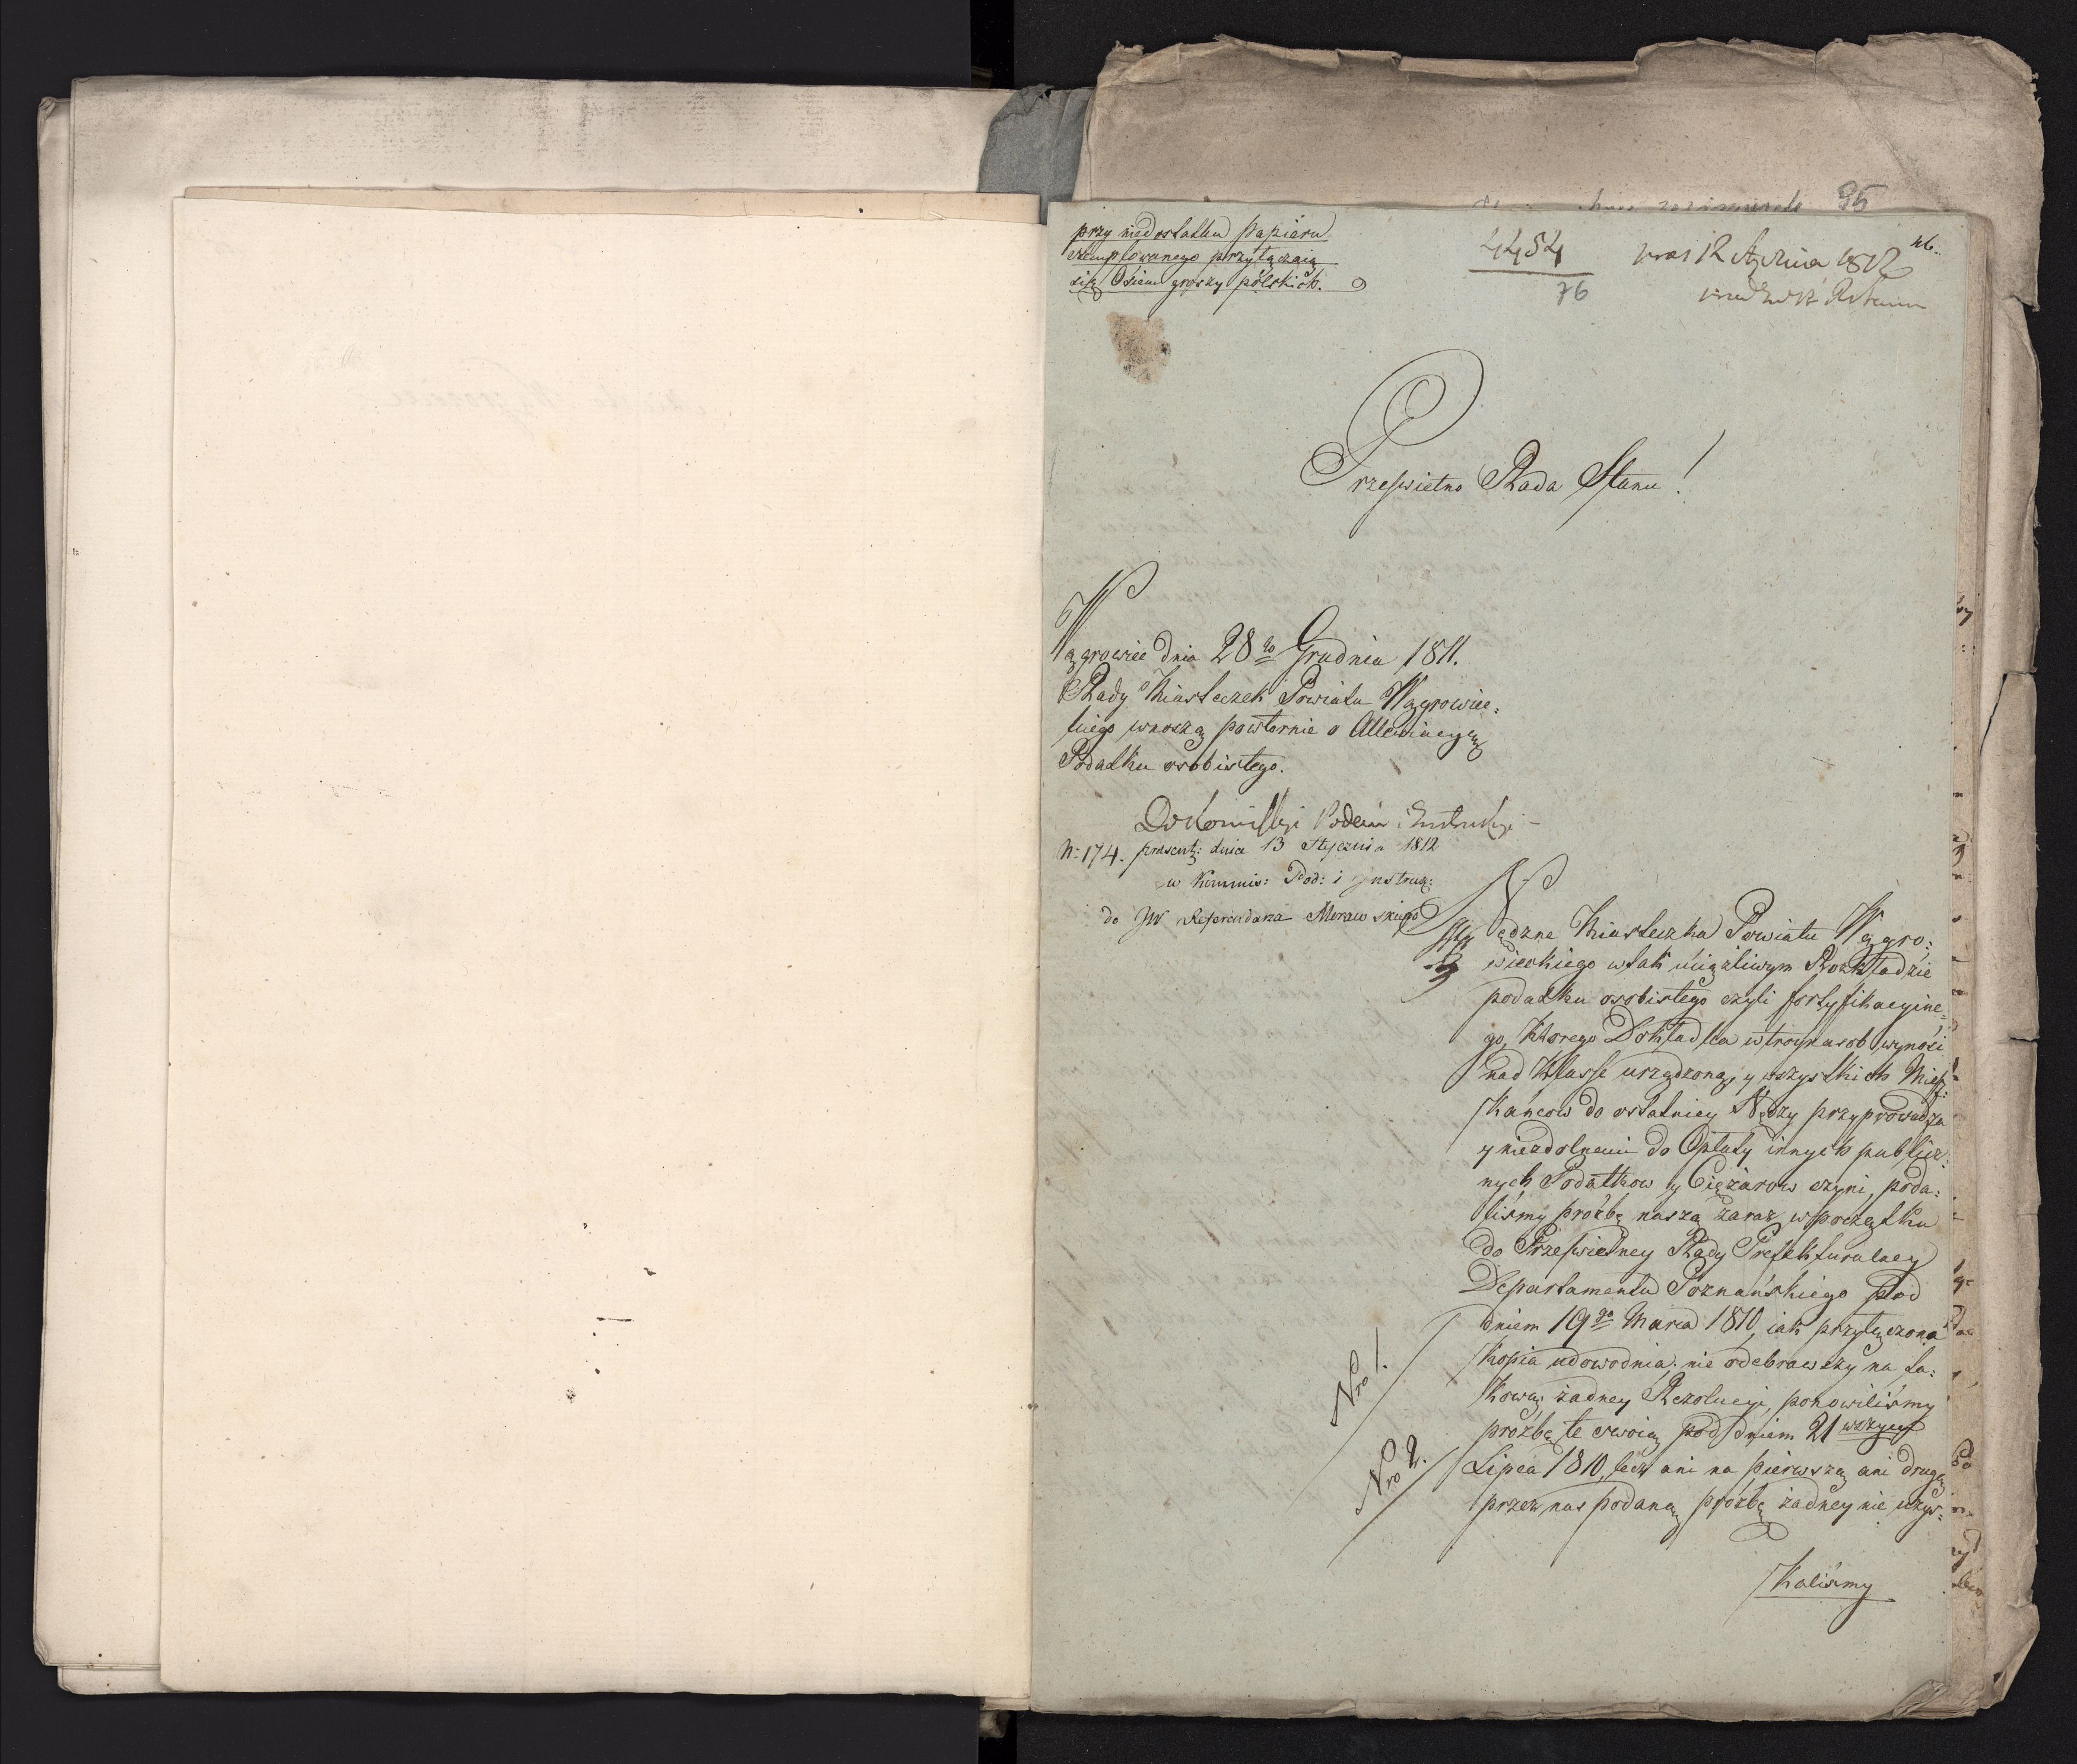 95
przy niedostatku papieru
stemplowanego przyłączaią
się Osiem groszy polskich.
4454
76
12 Stycznia 1812
46.
Prześwietna Rada Stanu!
Wągrowiec dnia 28go Grudnia 1811.
Rady Miasteczek Powiatu Wągrowiec:
kiego wnoszą powtornie o Allewiacyą
Podatku osobistego.
Do Komissyi Podań i Instrukcyi
N: 174. praesent: dnia 13 Stycznia 1812
w Kommis: Pod: i Instruk:
do JW Referendarza Morawskiego
Nędzne Miasteczka Powiatu Wągro:
wieckiego w tak uciążliwym Rozkładzie
podatku osobistego czyli fortyfikacyine:
go, ktorego Dokładka w troynasob wynosi
nad Klassę urządzoną, y wszystkich Miesz:
kańcow do ostatniey Nędzy przyprowadza
y niezdolnemi do Opłaty innych publicz:
nych Podatkow y Ciężarow czyni, poda:
liśmy prożbę naszą zaraz w początku
do Prześwietney Rady Prefekturalney
Departamentu Poznańskiego pod
dniem 19go Marca 1810, iak przyłączona
Nro 1.
Kopia udowodnia; nie odebrawszy na ta:
kową żadney Rezolucyi, ponowiliśmy
prożbę te swoią pod dniem 21wszym
Nro 2.
Lipca 1810, lecz ani na pierwszą ani drugą
przez nas podaną prożbę żadney nie uzys:
kaliśmy